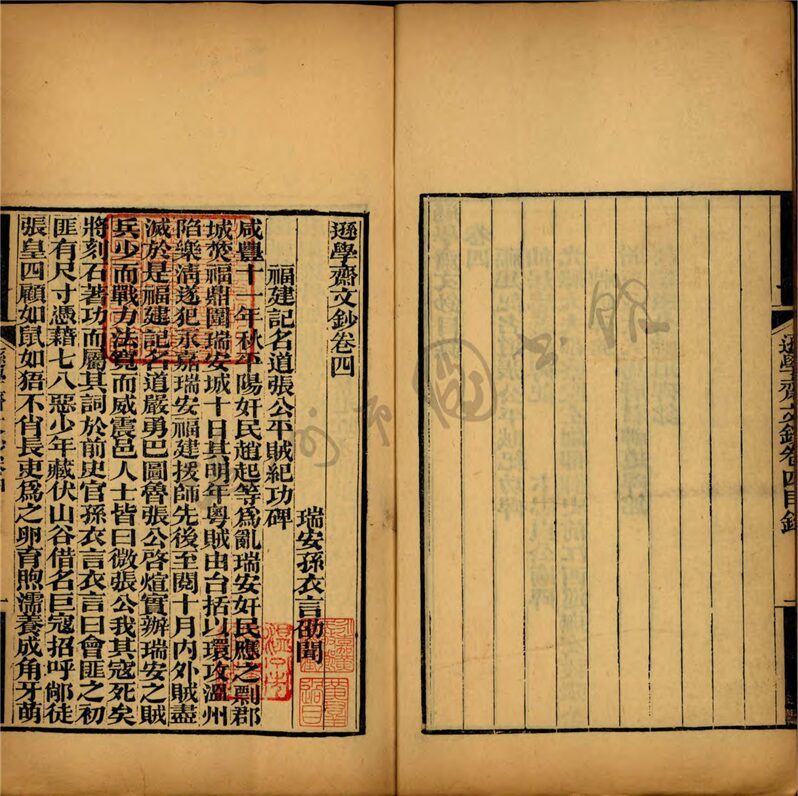 遜學齋文鈔卷四目錄
遜學齋文鈔卷四
瑞安孫衣言劭聞
福建記名道張公平賊紀功碑
咸豐十一年秋平陽奸民趙起等爲亂瑞安奸民應之剽郡
城焚福鼎圍瑞安城十日其明年粵賊由台括以環攻溫州
陷樂清遂犯永嘉瑞安福建援師先後至閱十月內外賊盡
滅於是福建記名道嚴勇巴圖魯張公啓煊實辦瑞安之賊
兵少而戰力法寬而威震邑人士皆曰微張公我其寇死矣
將刻石著功而屬其詞於前史官孫衣言衣言曰會匪之初
匪有尺寸憑藉七八惡少年藏伏山谷借名巨寇招呼鄉徒
張皇四顧如鼠如狧不肖長吏爲之卵育煦濡養成角牙萌